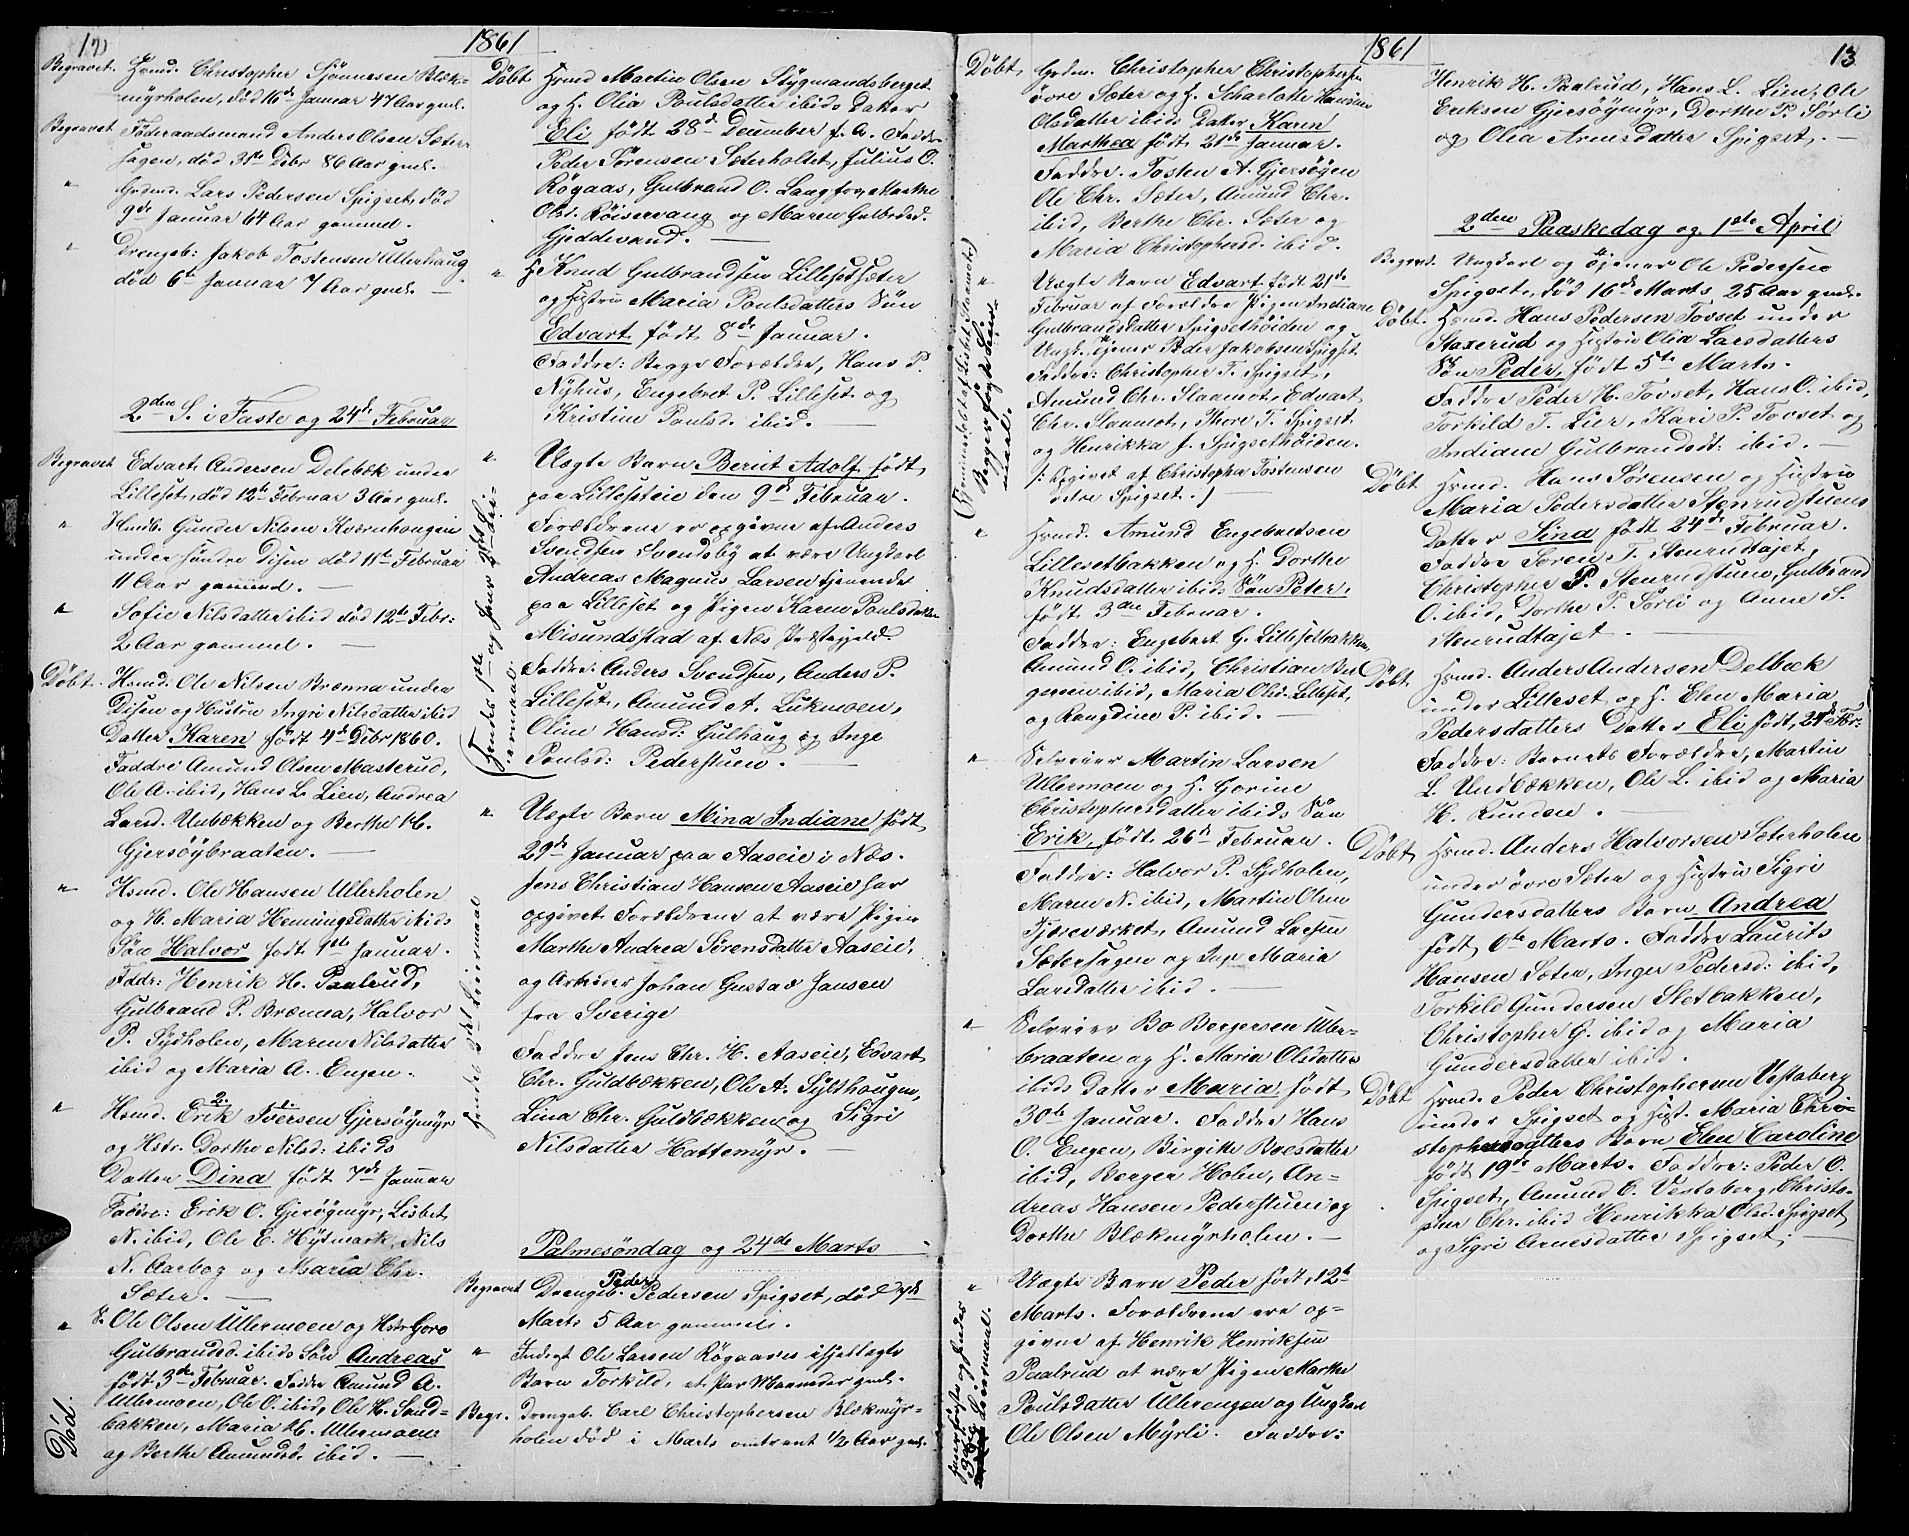 12
1861
Begravet. Hsmd. Christopher Tjønnesen Blek-
myrholen, død 16de Januar 47 Aar gml.
Begravet Føderaadsmand Anders Olsen Sæter-
hagen, død 31te Decbr 86 Aar gml.
" Grdmd. Lars Pedersen Spigset, død
9de Januar 64 Aar gammel.
" Drengeb: Jakob Tostensen Ullerhaug
død 6te Januar 7 Aar gml. —
2den S. i Faste og 24de Februar
Begravet Edvart Andersen Delebæk under
Lilleset, død 12te Februar 3 Aar gml.
" Hsmb. Gunder Nilsen Kværnhougen
under Søndre Disen død 11te Februar
11 Aar gammel. —
" Sofie Nilsdatter ibid død 12te Febr:
2 Aar gammel. —
Døbt. Hsmd. Ole Nilsen Brænna under
Disen og Hustru Ingri Nilsdatter ibid
Datter Karen født 4de Decbr 1860.
Faddre Amund Olsen Masterud,
Ole A. ibid, Hans L. Lien, Andrea
Larsd. Usbækken og Berthe M.
Gjersøybraaten. —
" Hsmd. Ole Hansen Ullerholen
og H. Maria Hemingsdatter ibids
Søn Halvor født 1ste Januar.
Faddr: Henrik H. Paalrud,
Gulbrand P. Brænna, Halvor
P. Sydholen, Maren Nilsdatter
ibid og Maria A. Engen.
" Hsmd. Erik Iversen Gjersøymyr
og Hstr. Dorthe Nilsd: ibids
Datter Dina født 7de Januar
Faddre: Erik O. Gjersøymyr, Lisbet
N. ibid, Ole E. Hytmark, Nils
N. Aarbog og Maria Chr.
Sæter. —
" S. Ole Olsen Ullermoen og Hstr Goro
Gulbrandsd. ibids Søn Andreas
født 3de Februar. Faddre Amund A.
Ullermoen, Ole O. ibid, Ole H. Sand-
bakken, Maria H. Ullermoen
og Berthe Amundsd. ibid. —
Død.
Døbt Hsmd Martin Olsen Stygmandsberget
og H. Olia Poulsdatter ibids Datter
Eli født 28de December f. A. Faddre
Peder Sørensen Sæterholtet, Julius O.
Røgaas, Gulbrand O. Langfos, Marthe
Olsd. Røisevang og Maren Gulbrdsd.
Gjeddevand. —
" H Knud Gulbrandsen Lillesetsæter
og Hustru Maria Poulsdatters Søn
Edvart født 8de Januar.
Faddre: Begge Forældre, Hans P.
Nyhus, Engebret P. Lilleset og
Kristine Poulsd. ibid. —
" Uægte Barn Bernt Adolf født
paa Lilleseteie den 9de Februar.
Forældrene er opgivne af Anders
Svendsen Svendsby at være Ungkarl
Andreas Magnus Larsen tjenende
paa Lilleset og Pigen Karen Poulsdatter
Misundstad af Næs Præstegjeld.
Faddre: Anders Svendsen, Anders P.
Lilleset, Amund A. Lukmoen,
Oline Hansd: Gulhaug og Inge
Poulsd: Pederstuen. —
(Hendes 1ste og hans 2det Lei-
ermaal.
" Uægte Barn Mina Indiane født
29de Januar paa Aaseie i Næs.
Jens Christian Hansen Aaseie har
opgivet Forældrene at være Pigen
Marthe Andrea Sørensdatter Aaseie,
og Arbeider Johan Gustav Jansen
fra Sverige
Faddre Jens Chr. H. Aaseie, Edvart
Chr. Guldbækken, Ole A. Sylthougen,
Lina Chr. Guldbækken og Sigri
Nilsdatter Hattemyr. —
Palmesøndag og 24de Marts
Begravet Drengeb. Peder Pedersen Spigset, død 7de
Marts 5 Aar gammel.
" Inderst Ole Larsen Røgaases uægte
Barn Torkild, et Par Maaneder gml.
Begr. Drengeb. Carl Christophersen Blekmyr-
holen død i Marts omtrent 1/2 Aar gml.
1861
13
Døbt Grdm. Christopher Christophersen
øvre Sæter og H. Scharlotte
Olsdatter ibids Datter Karen
Marthea født 21de Januar.
Faddre. Tosten A. Gjersøyen
Ole Chr. Sæter, Amund Chr.
ibid, Berthe Chr. Sæter og
Maria Christophersd. ibid.
" Uægte Barn Edvart født 21de
Februar af Forældre Pigen Indiane
Gulbrandsdatter Spigsethøiden og
Ungk. Tjener Peder Jakobsen Spigset.
Faddre: Christopher T. Spigset,
Amund Chr. Slaamot, Edvart
Chr. Slaamot, Thore T. Spigset
og Henrikka J. Spigsethøiden.
/: Opgivet af Christopher Tostensen
Spigset. /
Begges første Leier-
maal.
" Hsmd. Amund Engebretsen
Lillesetbakken og H. Dorthe
Knudsdatter ibids Søn Peter,
født 3die Februar.
Faddre: Engebret G. Lillesetbakken
Amund O. ibid, Christian Ber
gersen ibid, Maria Olsd. Lilleset,
og Rangdine P. ibid. —
" Selveier Martin Larsen
Ullermoen og H. Gorine
Christophersdatter ibids Søn
Erik, født 26de Februar.
Faddre: Halvor P. Sydholen,
Maren N. ibid, Martin Olsen
Tjæreværket, Amund Larsen
Sæterhagen og Inge Maria
Larsdatter ibid. —
" Selveier Bo Bergersen Uller-
braaten og H. Maria Olsdatter
ibids Datter Maria født
30te Januar. Faddre Hans
O. Engen, Birgitte Boesdatter
ibid, Berger Holen, An-
dreas Hansen Pederstuen og
Dorthe Blekmyrholen. —
" Uægte Barn Peder født 12te
Marts. Forældrene ere op-
givne af Henrik Henriksen
Paalrud at være Pigen Marthe
Poulsdatter Ullerengen og Ungkarl
Ole Olsen Myrli. Faddre:
Henrik H. Paalrud, Hans L. Lien, Ole
Eriksen Gjersøymyr, Dorthe P. Sørli
og Olia Arnesdatter Spigset. —
2den Paaskedag og 1ste April
Begravd. Ungkarl og Tjener Ole Pedersen
Spigset, død 16de Marts 25 Aar gml.
Døbt. Hsmd. Hans Pedersen Tovset under
Staxerud og Hustru Olia Larsdatters
Søn Peder, født 5te Marts.
Faddre Peder H. Tovset, Hans O. ibid,
Torkild T. Lier, Kari P. Tovset og
Indiane Gulbrandsdt: ibid. —
Døbt Hsmd. Hans Sørensen og Hustru
Maria Pedersdatter Stenrudstuens
Datter Sina født 24de Februar.
Faddre Søren T. Stenrudtajet,
Christopher P. Stenrudstuen, Gulbrand
O. ibid, Dorthe P. Sørli og Anne S.
Stenrudtajet. —
Døbt Hsmd. Anders Andersen Delbæk
under Lilleset og H. Elen Maria
Pedersdatters Datter Eli født 24de Febr:
Faddre: Barnets Forældre, Martin
L. Undbækken, Ole L. ibid og Maria
H. Runden.
Døbt Hsmd. Anders Halvorsen Sæterholen
under øvre Sæter og Hustru Sigri
Gundersdatters Barn Andrea
født 6te Marts. Faddre Laurits
Hansen Sæter, Inger Pedersd: ibid,
Torkild Gundersen Sletbakken,
Christopher G. ibid og Maria
Gundersdatter ibid.
Døbt Hsmd. Peder Christophersen Vestaberg
under Spigset og Hust. Maria Chri-
stophersdatters Barn Elen Caroline
født 19de Marts. Faddre: Peder O.
Spigset, Amund C. Vestaberg, Christo-
pher Chr. ibid Henrikka Olsd. Spigset
og Sigri Arnesdatter Spigset. —